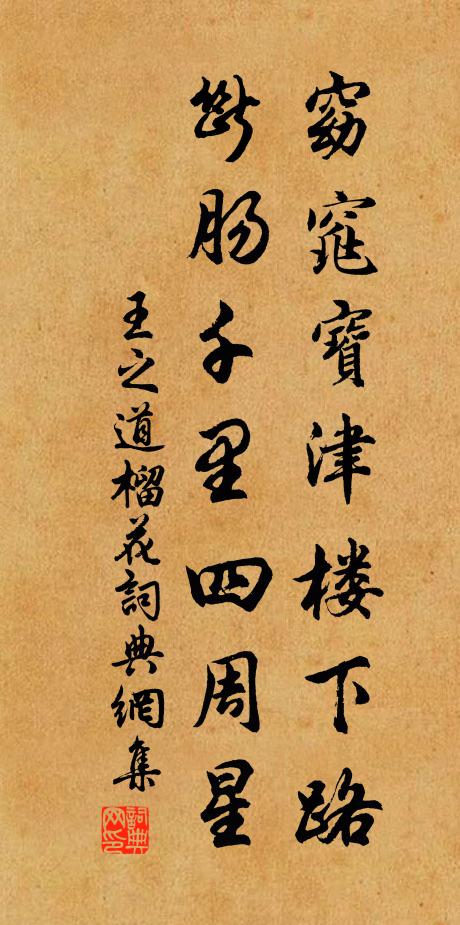 窈窕寶津楼下路
斷肠千里四周星
王之道榴花詞典網集
詞典网印